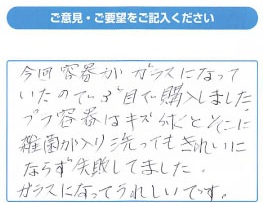 ご意見・ご要望をご記入ください
今回容器がガラスになって
いたので、3ヶ目で購入しました。
プラ容器はキズがつくとそこに
雑菌が入り洗ってもきれいに
ならず失敗してました。
ガラスになってうれしいです。